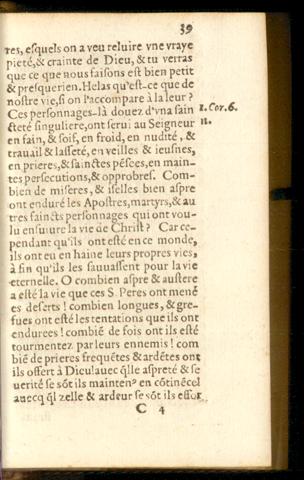 39
res, esquels on a veu reluire vne vraye
pieté, & crainte de Dieu, & tu verras
que ce que nous faisons est bien petit
& presque rien. Helas qu'est-ce que de
nostre vie, si on l'accompare à la leur?
Ces personnages-là douez d'vna sain
cteté singuliere, ont serui au Seigneur
en fain, & soif, en froid, en nudité, &
trauail & lasseté, en veilles & ieusnes,
en prieres, & sainctes pēsees, en main-
tes persecutions, & opprobres. Com-
bien de miseres, & iselles bien aspre
ont enduré les Apostres, martyrs, & au
tres saincts personnages qui ont vou-
lu ensuiure la vie de Christ? Car ce-
pendant qu'ils ont esté en ce monde,
ils ont eu en haine leurs propres vies,
à fin qu'ils les sauuassent pour la vie
eternelle. O combien aspre & austere
a esté la vie que ces S. Peres ont mené
es deserts! combien longues, & gre-
fues ont esté les tentations que ils ont
endurees! combiē de fois ont ils esté
tourmentez par leurs ennemis! com
biē de prieres frequētes & ardētes ont
ils offert à Dieu! auec q̄lle aspreté & se
uerité se sōt ils maintenꝰ en cōtinēce!
auecq q̄l zelle & ardeur se sōt ils effor
C 4
1. Cor. 6.
11.